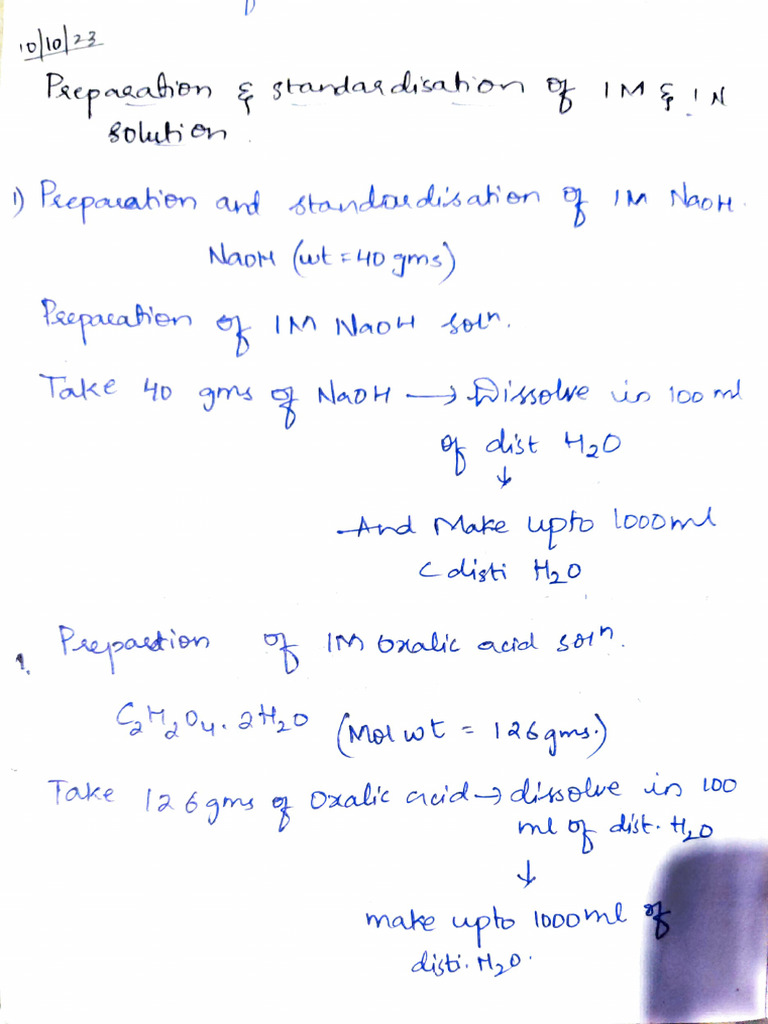 10/10/23
Preparation & standardisation of 1M & 1N
solution
1) Preparation and standardisation of 1M NaOH.
NaOH (wt = 40 gms)
Preparation of 1M NaOH soln.
Take 40 gms of NaOH → Dissolve in 100 ml
of dist H2O
↓
And Make upto 1000ml
C disti H2O
Prepartion of 1M Oxalic acid soln.
1.
C2H2O4. 2H2O (Mol wt = 126gms.)
Take 126gms of Oxalic acid → dissolve in 100
ml of dist. H2O
↓
make upto 1000ml of
disti. H2O.